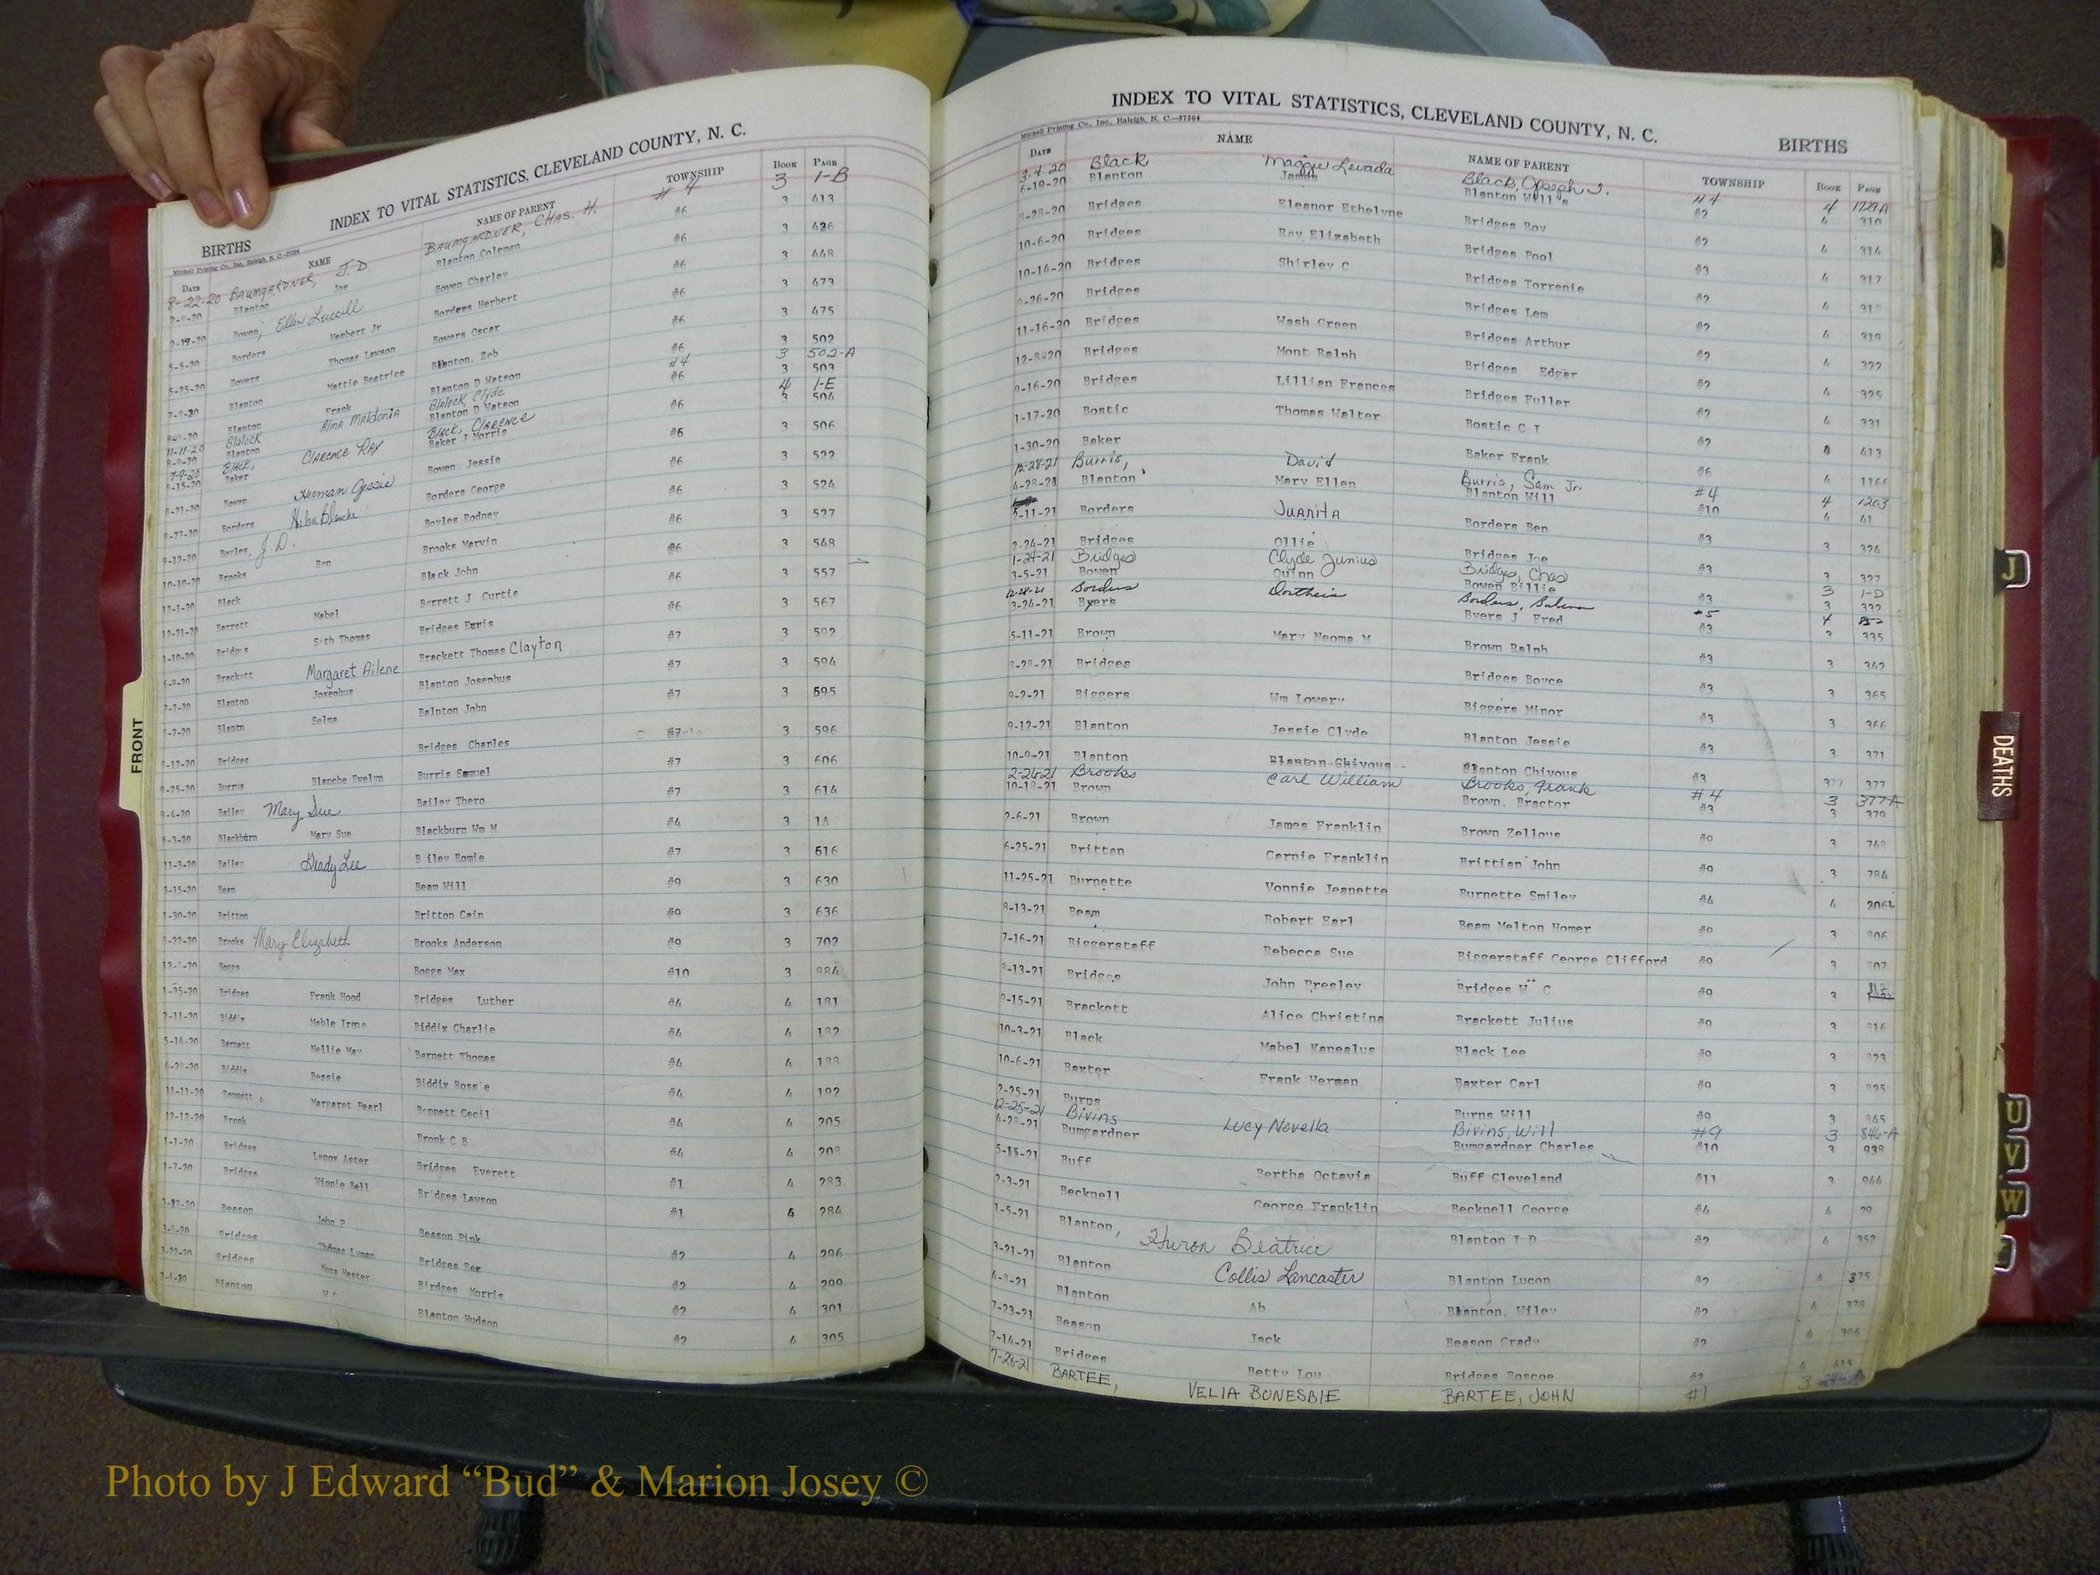 INDEX TO VITAL STATISTICS, CLEVELAND COUNTY, N. C.
BIRTHS
DATE NAME NAME OF PARENT TOWNSHIP BOOK PAGE
8-22-20 BAUMGARDNER, J.D BAUMGARDNER, CHAS. H. #4 3 1-B
Blanton Joe Blanton Coleman #6 3 413
2-19-20 Bowen, Ellen Lucille Bowen Charley #6 3 426
5-5-20 Borders Herbert Jr Borders Herbert #6 3 448
5-25-20 Bowers Thomas Lawson Bowers Oscar #6 3 473
Blanton Mattie Beatrice Blanton, Zeb #6 3 475
Blanton Frank Blanton D Watson #6 3 502
11-11-20 Blalock Alma Maldonia Blalock, Clyde #4 3 502-A
Blanton Blanton D Watson #6 3 503
7-9-20 Black, Clarence Ray Black, Clarence 4 1-E
8-15-20 Baker Baker J Morris 3 504
8-21-20 Bowen Herman Jessie Bowen Jessie #6 3 506
9-27-20 Borders Helen Blanche Borders George #6 3 522
9-12-20 Boyles, J.D. Boyles Rodney #6 3 524
10-10-20 Brooks Ben Brooks Marvin #6 3 527
12-1-20 Black Black John #6 3 548
12-21-20 Barrett Mabel Barrett J Curtis #6 3 557
1-10-20 Bridges Seth Thomas Bridges Euris #6 3 567
Brackett Margaret Ailene Brackett Thomas Clayton #7 3 592
7-2-20 Blanton Josephus Blanton Josephus #7 3 594
Blantn Selma Balnton John #7 3 595
8-12-20 Bridges Bridges Charles #7 3 596
9-25-20 Burrus Blanche Evelyn Burris Samuel #7 3 606
9-4-20 Bailey Mary Sue Bailey Thero #7 3 614
6-3-20 Blackburn Mary Sue Blackburn Wm M #4 3 14
11-8-20 Bailey Grady Lee Bailey Romie #7 3 616
3-15-20 Beam Beam Will #9 3 630
1-30-20 Britton Britton Cain #9 3 636
8-22-20 Brooks Mary Elizabeth Brooks Anderson #9 3 702
12-9-20 Boggs Boggs Max #10 3 884
1-25-20 Bridges Frank Hood Bridges Luther #4 4 181
2-11-20 Biddix Mable Irene Biddix Charlie #4 4 182
5-14-20 Barnett Nellie May Barnett Thomas #4 4 188
6-28-20 Biddix Bessie Biddix Rossie #4 4 192
11-11-20 Bennett Margaret Pearl Bennett Cecil #4 4 205
12-12-20 Bronk Bronk C B #4 4 208
1-1-20 Bridges Lenox Aster Bridges Everett #1 4 283
1-7-20 Bridges Winnie Bell Bridges Lawson #1 4 284
2-12-20 Beason John P Beason Pink #2 4 296
Bridges Thomas Lyman Bridges Reg #2 4 299
Bridges Nora Hester Birdges Morris #2 4 301
Blanton Blanton Hudson #2 4 305
FRONT
INDEX TO VITAL STATISTICS, CLEVELAND COUNTY, N. C.
Mitchell Printing Co., Inc., Raleigh, N. C.—37304
BIRTHS
DATE NAME NAME OF PARENT TOWNSHIP BOOK PAGE
3-4-20 Black Maggie Levada Black, Joseph J. #4 4 1729A
6-19-20 Blanton James Blanton Will's #2 4 310
8-28-20 Bridges Eleanor Ethelyne Bridges Roy #2 4 314
10-6-20 Bridges Ray Elizabeth Bridges Pool #3 4 317
10-14-20 Bridges Shirley C Bridges Torrenie #2 4
9-26-20 Bridges Bridges Lem #2 4 319
11-16-20 Bridges Wash Green Bridges Arthur #2 4 322
12-8920 Bridges Mont Ralph Bridges Edgar #2 4 325
9-16-20 Bridges Lillian Frances Bridges Fuller #2 4 331
1-17-20 Bostic Thomas Walter Bostic C T #2 413
1-30-20 Baker Baker Frank #6 4 1166
12-28-21 Burris, David Burris, Sam Jr. #4 4 1203
4-28-21 Blanton Mary Ellen Blanton Will #10 4 41
5-11-21 Borders Juanita Borders Ben #3 3 324
2-24-21 Bridges Ollie Bridges Joe #3 3 327
1-24-21 Bridges Clyde Junius Bridges, Chas 3 1-D
3-5-21 Bowen Quinn Bowen Billie #3 3 332
12-28-21 Borders Dortheia Borders, #5 4 852
3-24-21 Byers Byers J Fred #3 3 335
5-11-21 Brown Mary Neoma M Brown Ralph #3 3 342
8-28-21 Bridges Bridges Boyce #3 3 365
9-2-21 Biggers Wm Lowery Biggers Minor #3 3 366
9-12-21 Blanton Jessie Clyde Blanton Jessie #3 3 371
10-9-21 Blanton Blanton Chivous Blanton Chivous #3 377
2-26-21 Brooks Carl William Brooks, Frank #4 3 377A
10-18-21 Brown Brown, Bractor #3 3 379
2-6-21 Brown James Franklin Brown Zellous #9 3 742
6-25-21 Brittan Carnie Franklin Brittian John #9 3 784
11-25-21 Burnette Vonnie Jeanette Burnette Smiley #4 4 2064
8-13-21 Beam Robert Earl Beam Melton Homer #9 3 806
7-16-21 Biggerstaff Rebecca Sue Biggerstaff George Clifford #9 3 807
8-13-21 Bridges John Presley Bridges W C #9 3 812
9-15-21 Brackett Alice Christina Brackett Julius #9 3 816
10-3-21 Black Mabel Kanealus Black Lee #9 3 823
10-6-21 Baxter Frank Herman Baxter Carl #9 3 825
2-25-21 Burns Burns Will #9 3 845
12-25-21 Bivins Lucy Novella Bivins, Will #9 3 846-A
4-28-21 Bumgardner Bumgardner Charles #10 3 938
5-15-21 Buff Bertha Octavia Buff Cleveland #11 3 944
2-3-21 Becknell George Franklin Becknell George #4 4 29
1-5-21 Blanton, Huron Beatrice Blanton J D #2 4 352
3-21-21 Blanton Collis Lancaster Blanton Lucon #2 4 375
4-9-21 Blanton Ab Blanton, Wiley #2 4 379
7-23-21 Beason Jack Beason Grady #2 4
7-14-21 Bridges Betty Lou Bridges Roscoe #2 4 415
7-26-21 BARTEE, VELIA BONESBIE BARTEE, JOHN #1 3
J
DEATHS
U
V
W
Photo by J Edward “Bud” & Marion Josey ©